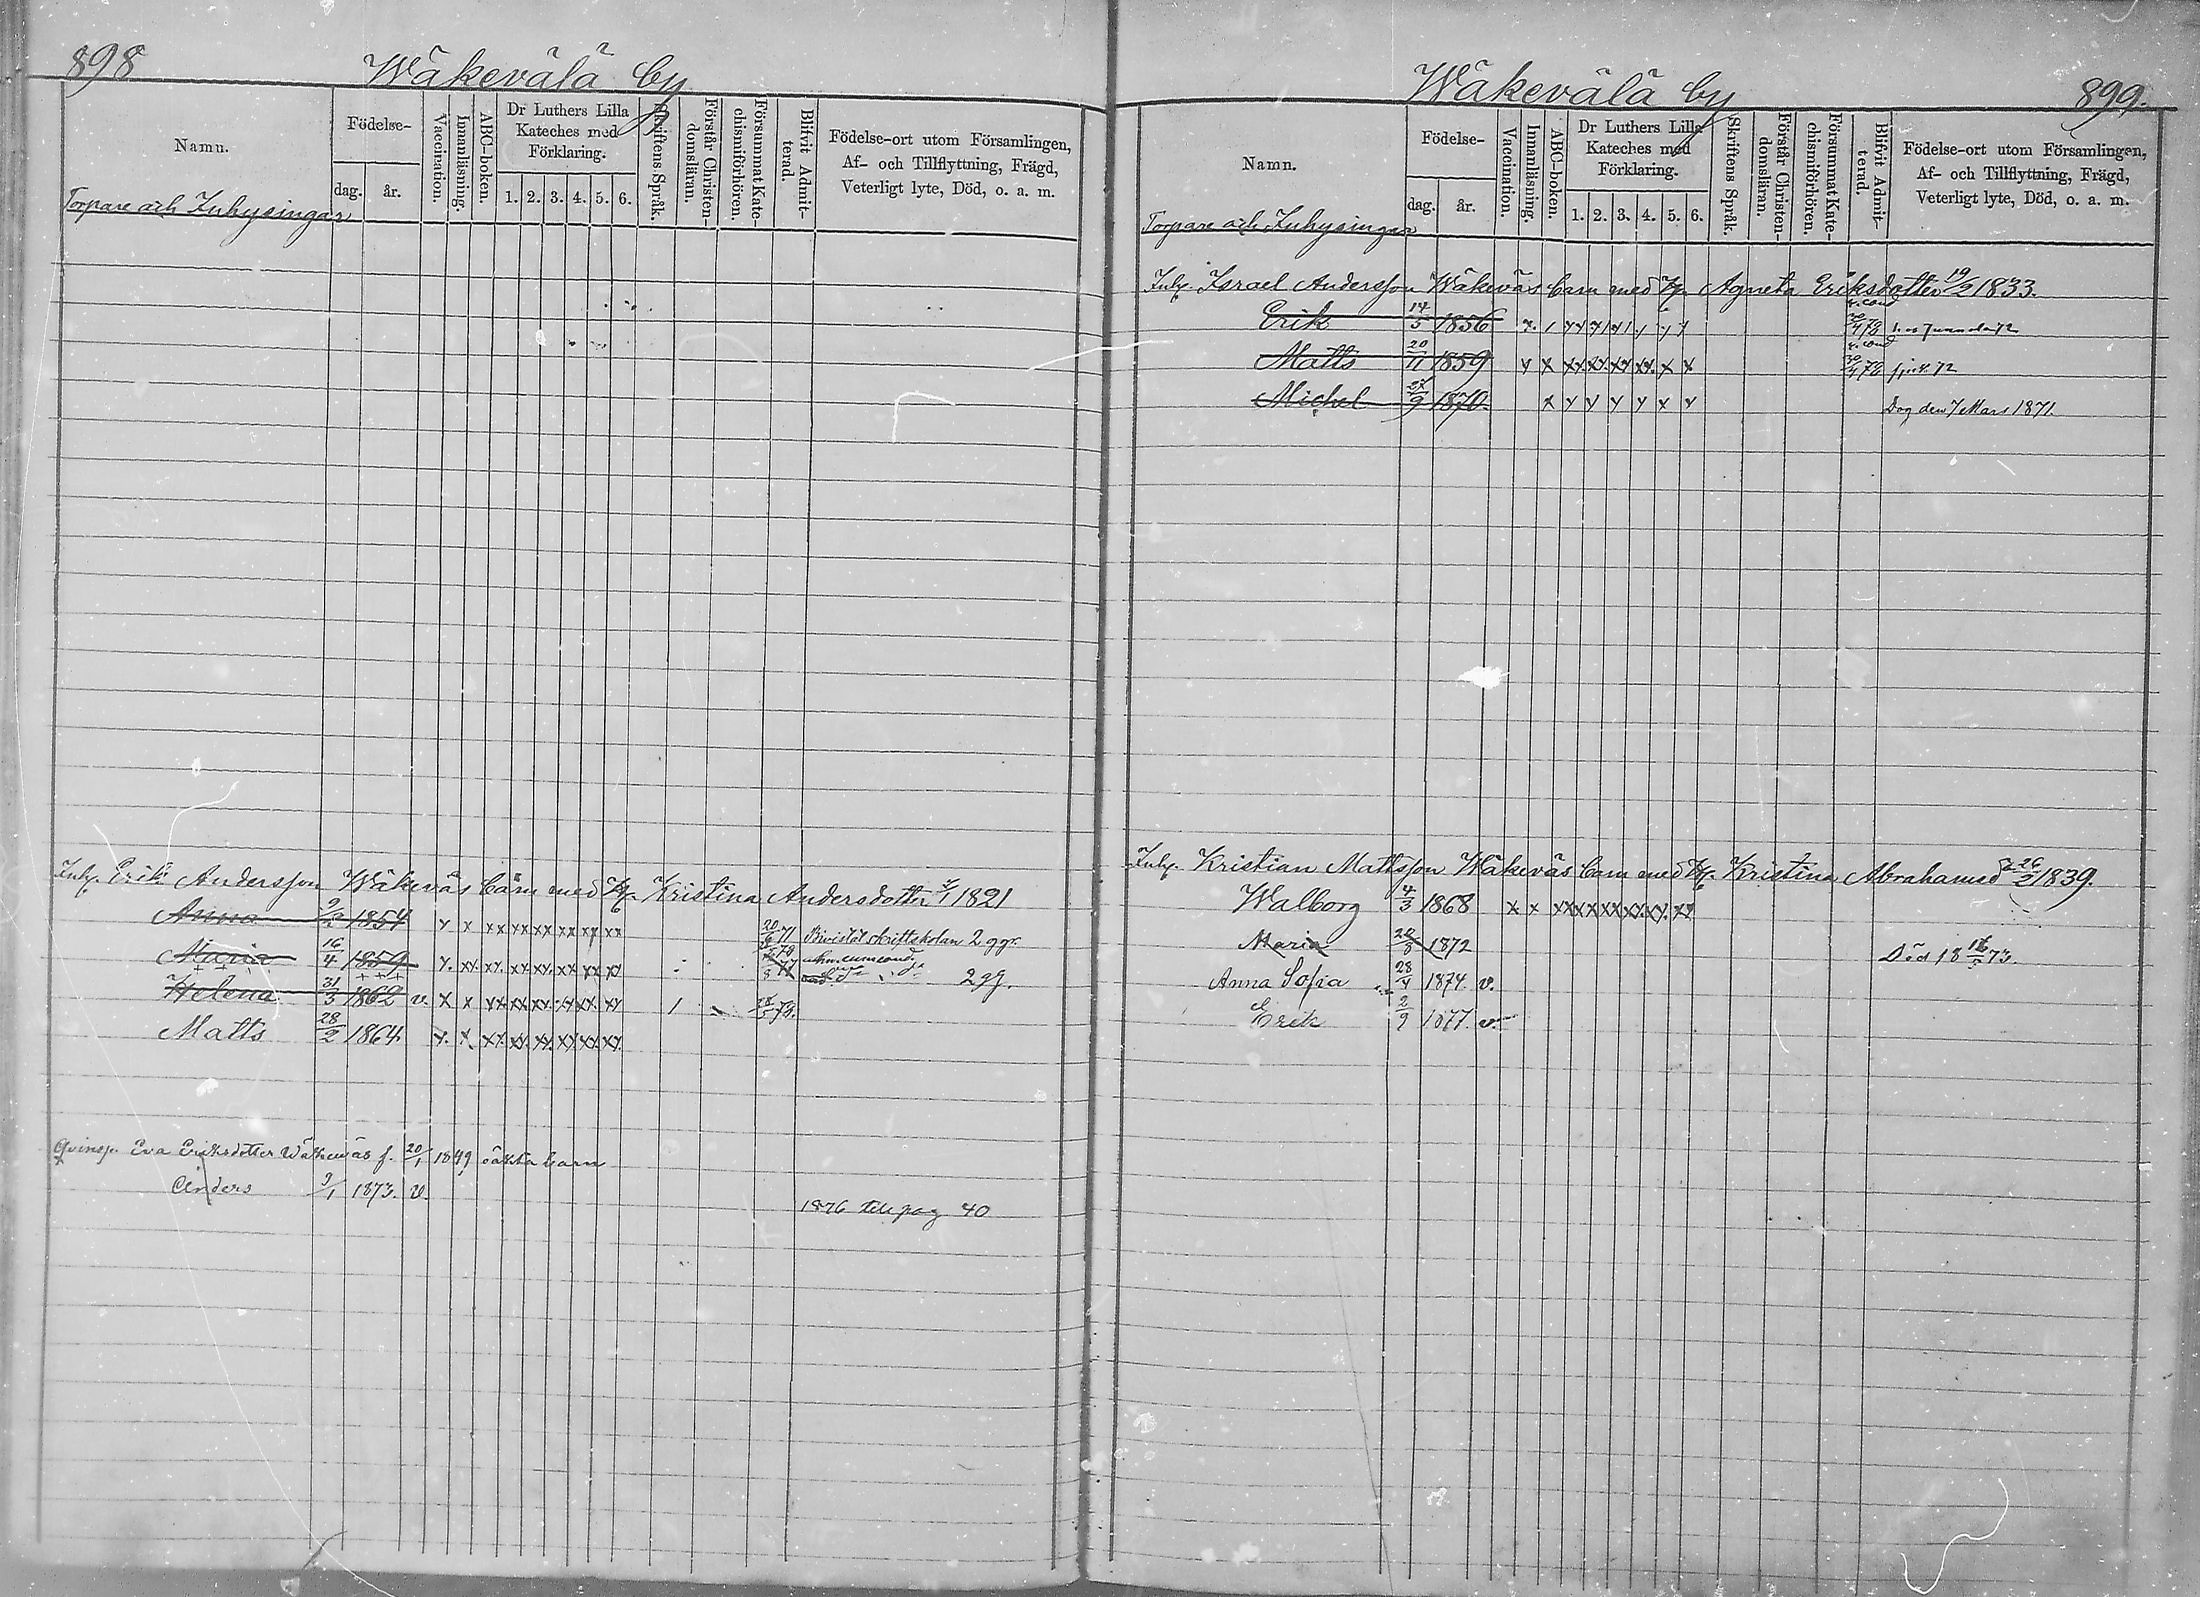 898
Wäkevälä by
Namn.
Födelse-
dag. år.
Vaccination.
Innanläsning.
ABC-boken.
Dr Luthers Lilla Kateches med Förklaring.
1. 2. 3. 4. 5. 6.
Skriftens Språk.
Förstår Christendomsläran.
Försummat Katechismiförhören.
Blifvit Admitterad.
Födelse-ort utom Församlingen,
Af- och Tillflyttning, Frägd,
Veterligt lyte, Död, o. a. m.
Torpare och Inhysingar
Inh. Erik Andersson Wäkeväs barn med H. Kristina Andersdotter 1821
Anna 1854 20/6 71 Bivistat skriftskolan 2 ggr.
Maria 16/4 1859 2 gg.
Helena 31/3 1862 v.
Matts 28/2 1864
Qvinsp. Eva Eriksdotter Wäkeväs f. 20/1 1849 oäkta barn
Anders 9/1 1873. v.
1876 till pag 40
Wäkevälä by
899.
Namn.
Födelse-
dag. år.
Vaccination.
Innanläsning.
ABC-boken.
Dr Luthers Lilla Kateches med Förklaring.
1. 2. 3. 4. 5. 6.
Skriftens Språk.
Förstår Christendomsläran.
Försummat Katechismiförhören.
Blifvit Admitterad.
Födelse-ort utom Församlingen,
Af- och Tillflyttning, Frägd,
Veterligt lyte, Död, o. a. m.
Torpare och Inhysingar
Inh. Israel Andersson Wäkeväs barn med H. Agneta Eriksdotter 19/2 1833.
Erik 14/5 1856
Matts 20/11 1859
Michel 1870. Dog den 7 Mars 1871.
Inh. Kristian Mattsson Wäkeväs barn med H. Kristina Abrahamsd. 26/2 1839.
Walborg 4/3 1868
Maria 1872 Död 18 16/5 73.
Anna Sofia 28/4 1874. v.
Erik 2/9 1877. v.